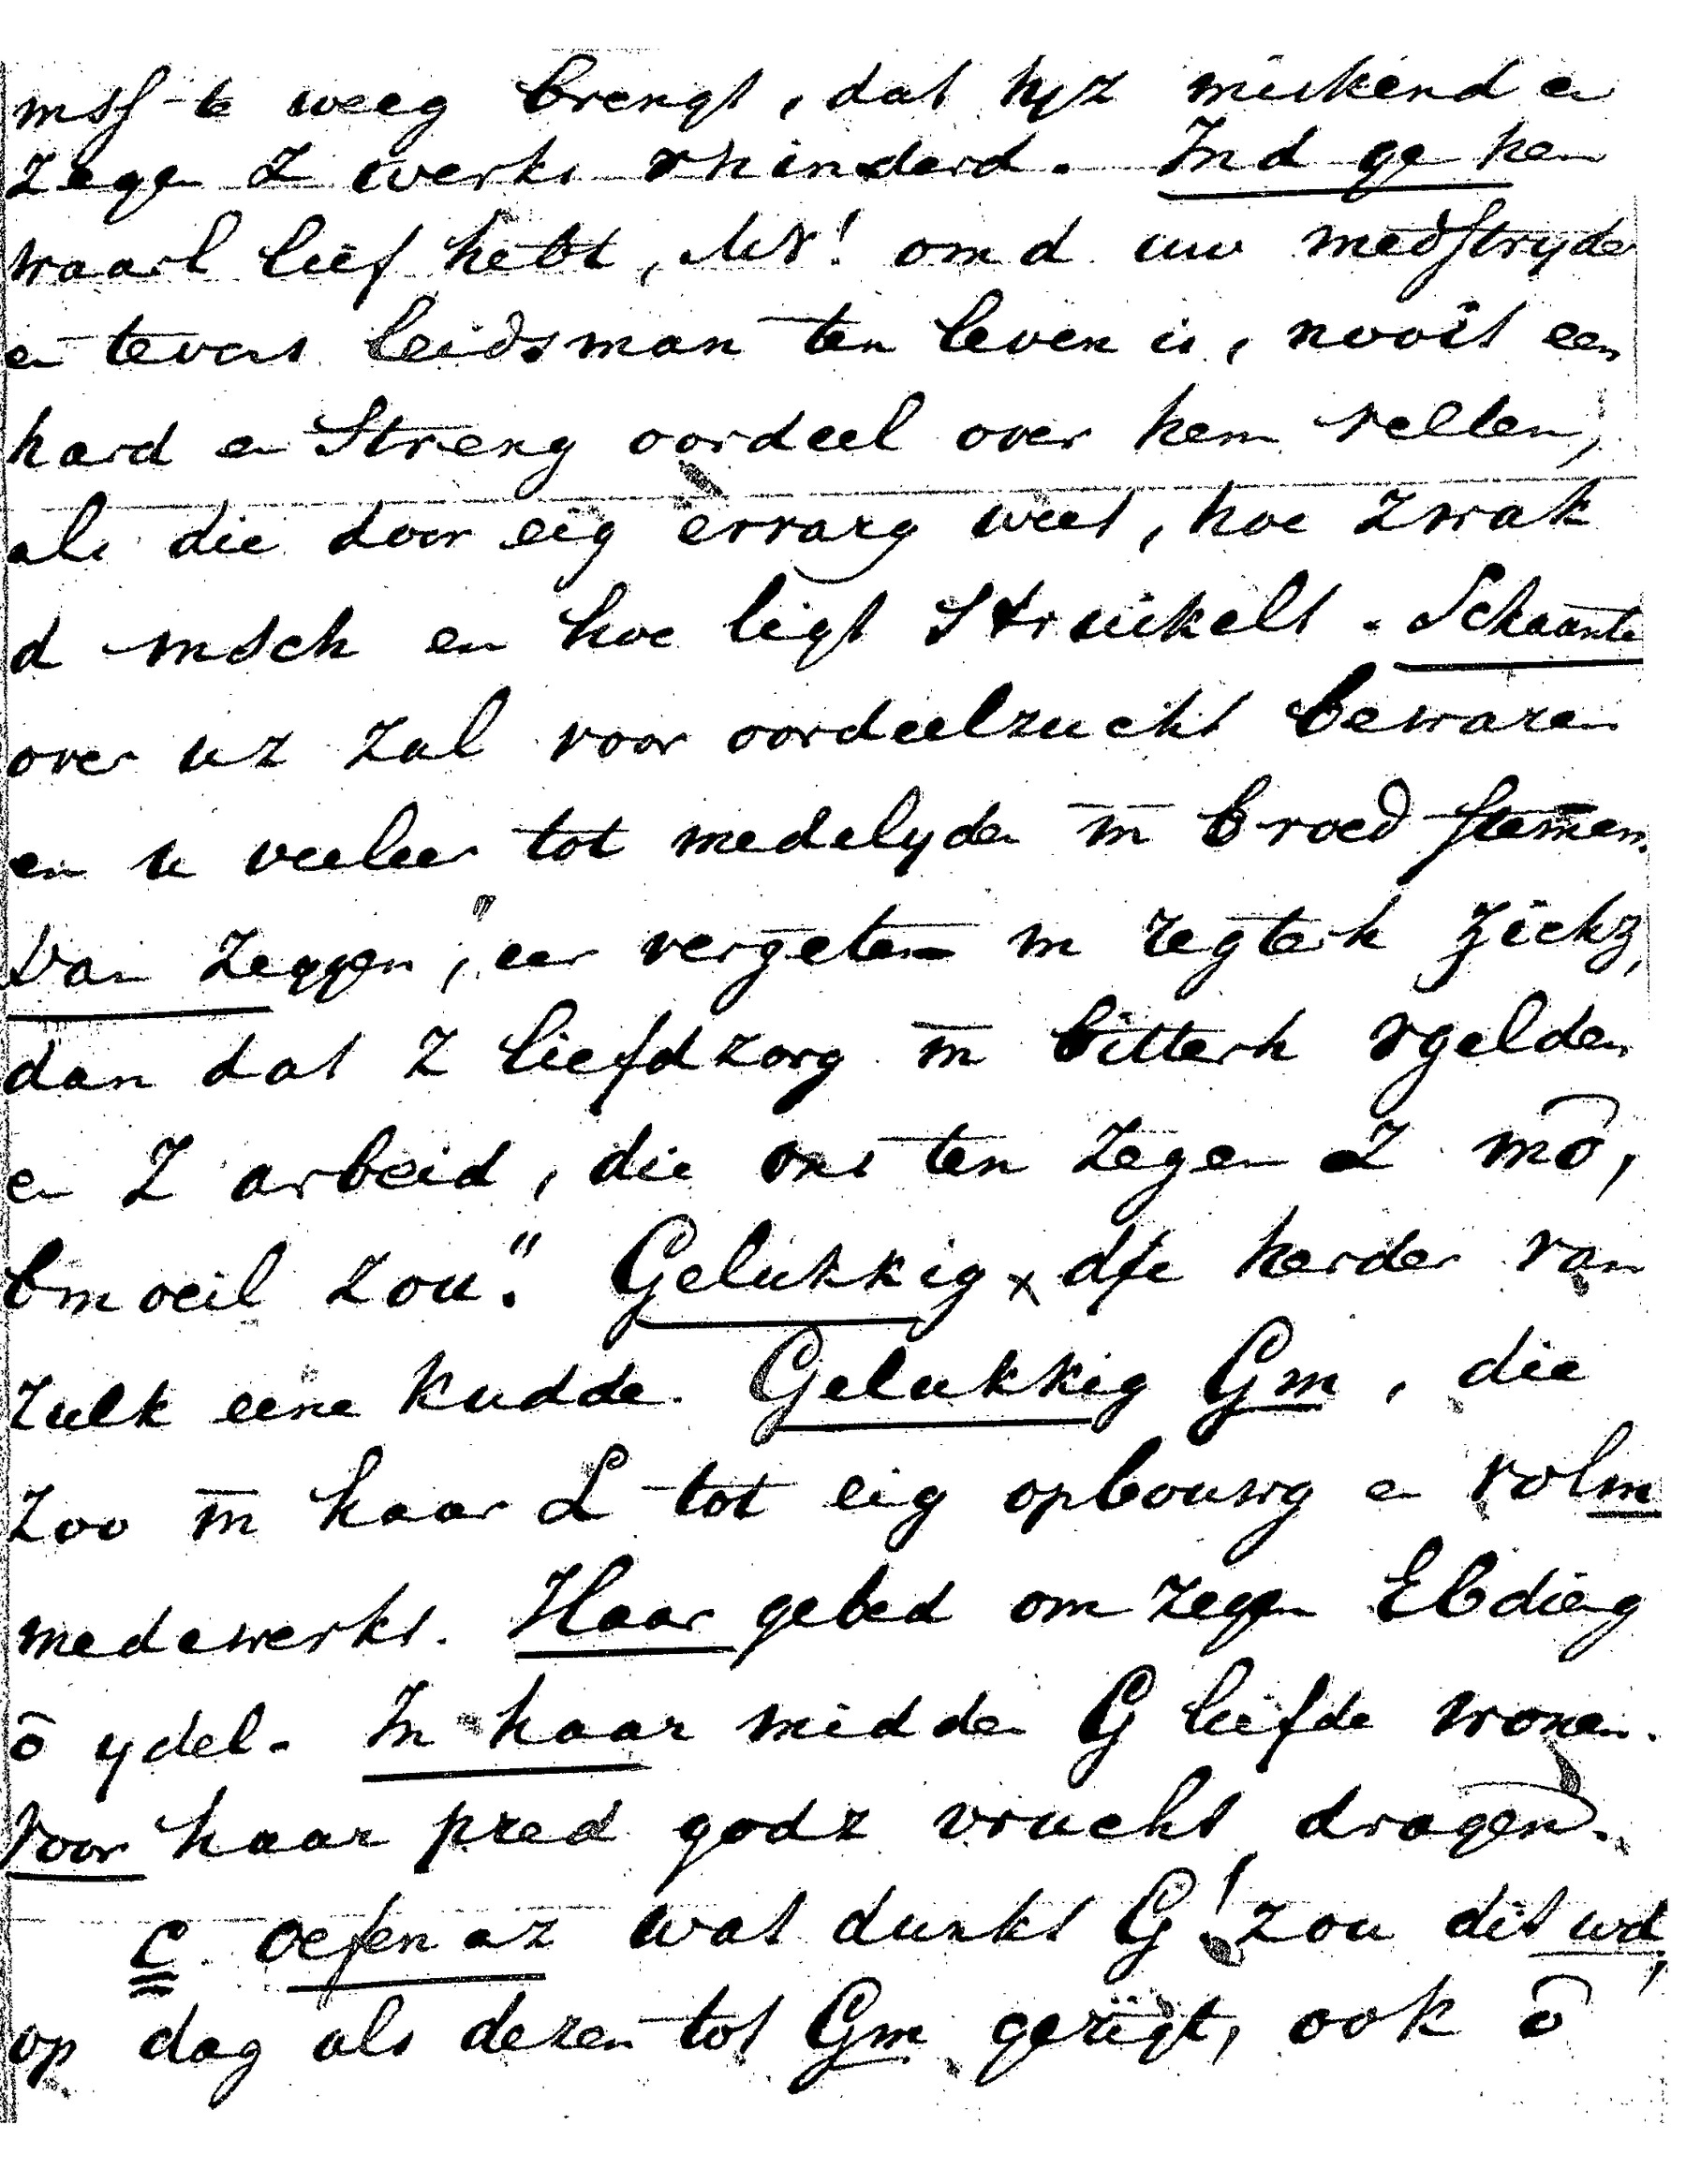 msf te weeg brengt, dat hyz miskend en
zegen z werks rhinderd. Ind ge hem
waarl lief hebt, MV! omd uw medstryder
en tevens leidsman ten leven is, nooit een
hard en streng oordeel over hem vellen,
als die door eig ervarg weet, hoe zwak
d msch en hoe ligt struikelt. Schaamte
over uz zal voor oordeelzucht bewaren
en u veeleer tot medelyden m̅ broed stem̅en.
Dan zeggen, "eer vergeten m regterh zichz,
dan dat z liefdzorg m̅ bitterh vgelden
en z arbeid, die ons ten zegen z mō,
bmoeil zou." Gelukkig x die herder van
zulk eene kudde. Gelukkig Gm, die
zoo m̅ haar L tot eig opbouwg en volm
medewerkt. Haar gebed om zegen Ebdieng
ō ydel. In haar midden G liefde wonen.
Voor haar pred godz vrucht dragen.
C. oefen az wat dunkt G! zou dit wd,
op dag als dezen tot Gm gerigt, ook ō